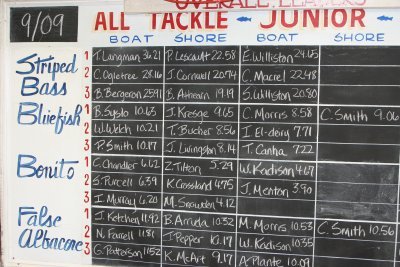 OVERALL LEADERS
9/09
ALL TACKLE JUNIOR
BOAT SHORE BOAT SHORE
Striped Bass
1 T. Langman 36.21 P. Lescault 22.58 E. Williston 24.65
2 C. Ogletree 28.16 J. Cornwell 20.74 C. Macrel 22.48
3 B. Bergeron 25.91 B. Ahearn 19.19 S. Williston 20.80
Bluefish
1 B. Systo 10.63 J. Kresge 9.65 C. Morris 8.58 C. Smith 9.06
2 W. Welch 10.21 T. Bucher 8.56 I. El-deiry 7.71
3 P. Smith 10.17 J. Livingston 8.14 T. Canha 7.22
Bonito
1 G. Chandler 6.62 Z. Tilton 5.29 W. Kadison 4.67
2 S. Purcell 6.39 K. Crossland 4.75 J. Menton 3.90
3 I. Murray 6.20 M. Snowden 4.12
False Albacore
1 J. Ketchen 11.92 B. Arruda 10.32 M. Morris 10.53 C. Smith 10.56
2 N. Farrell 11.81 J. Pepper 10.17 W. Kadison 10.35
3 G. Patterson 11.52 K. McArt 9.17 A. Plante 10.09